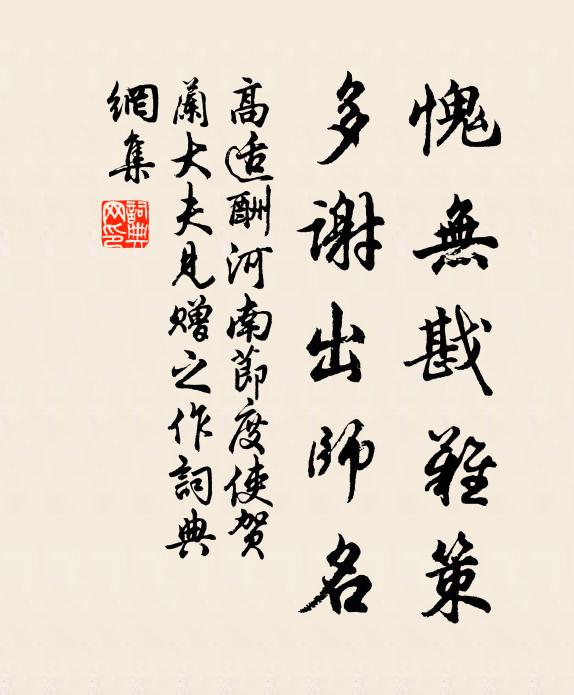 愧無戡難策
多謝出師名
高適酬河南節度使賀
蘭大夫見贈之作詞典
網集
詞典
网印